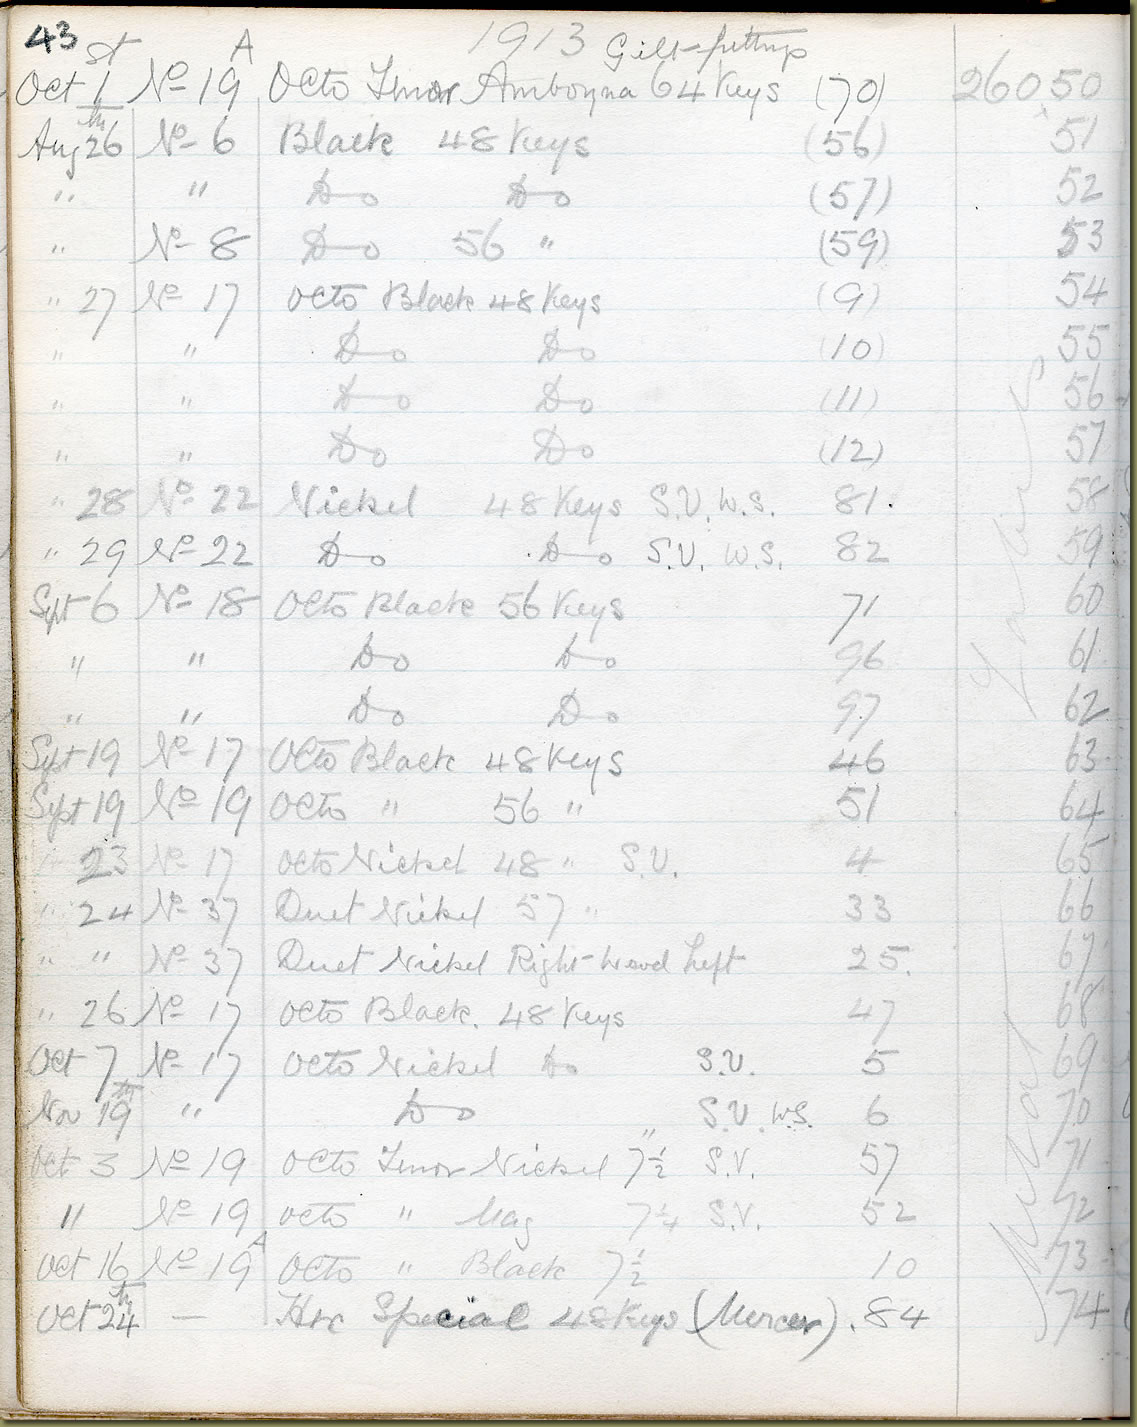 43 1913 Gilt-fittings
Oct 1st No 19A Octo Tenor Amboyna 64 Keys (70) 26050
Aug 26th No 6 Black 48 Keys (56) 51
" " Do Do (57) 52
" No 8 Do 56 " (59) 53
" 27 No 17 Octo Black 48 Keys (9) 54
" " Do Do (10) 55
" " Do Do (11) 56
" " Do Do (12) 57
" 28 No 22 Nickel 48 Keys S.V. W.S. 81. 58
" 29 No 22 Do Do S.V. W.S. 82 59
Sept 6 No 18 Octo Black 56 Keys 71 60
" " Do Do 96 61
" " Do Do 97 62
Sept 19 No 17 Octo Black 48 Keys 46 63
Sept 19 No 19 Octo " 56 " 51 64
" 23 No 17 Octo Nickel 48 " S.V. 4 65
" 24 No 37 Duet Nickel 57 " 33 66
" " No 37 Duet Nickel Right-hand Left 25. 67
" 26 No 17 Octo Black. 48 Keys 47 68
Oct 7 No 17 Octo Nickel Do S.V. 5 69
Nov 19th " Do " S.V. W.S. 6 70
Oct 3 No 19 Octo Tenor Nickel 7½ S.V. 57 71
" No 19 Octo " Mag 7¼ S.V. 52 72
Oct 16 No 19A Octo " Black 7½ 10 73
Oct 24th — Hex Special 48 Keys (Mercer). 84 74